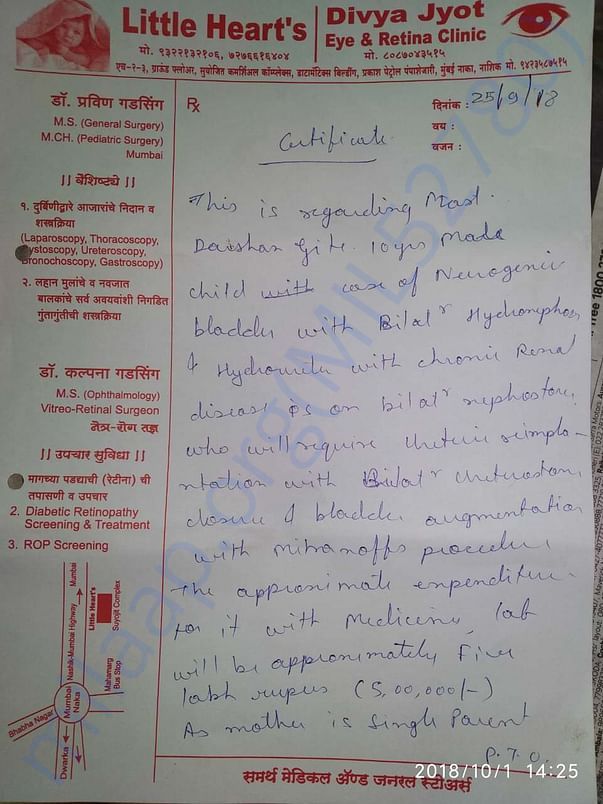 Little Heart's
Divya Jyot
Eye & Retina Clinic
मो. ९३२२१३२१०६, ७२७६६१६४०४
मो. ८०८७०४३५१५
एच-२-३, ग्राऊंड फ्लोअर, सुयोजित कमर्शिअल कॉम्प्लेक्स, डाटामॅटिक्स बिल्डींग, प्रकाश पेट्रोल पंपाशेजारी, मुंबई नाका, नाशिक मो. ९४२३५८७५१५
डॉ. प्रविण गडसिंग
M.S. (General Surgery)
M.CH. (Pediatric Surgery)
Mumbai
|| वैशिष्ट्ये ||
१. दुर्बिणीद्वारे आजारांचे निदान व
शस्त्रक्रिया
(Laparoscopy, Thoracoscopy,
ystoscopy, Ureteroscopy,
ronochoscopy, Gastroscopy)
२. लहान मुलांचे व नवजात
बालकांचे सर्व अवयवांशी निगडित
गुंतागुंतीची शस्त्रक्रिया
डॉ. कल्पना गडसिंग
M.S. (Ophthalmology)
Vitreo-Retinal Surgeon
नेत्र-रोग तज्ञ
|| उपचार सुविधा ||
मागच्या पडद्याची (रेटीना) ची
तपासणी व उपचार
2. Diabetic Retinopathy
Screening & Treatment
3. ROP Screening
Mumbai
Nashik-Mumbai Highway
Little Heart's
Suyojit Complex
Mahamarg
Bus Stop
Mumbai
Naka
Bhabha Nagar
Dwarka
Rx
दिनांक : 25/9/18
वय :
वजन :
Certificate
This is regarding Mast.
Darshan Gite 10yrs Male
child with case of Neurogenic
bladder with Bilatr Hydronephros
& Hydroureter with chronic Renal
disease is on bilatr nephrostom
who will require Ureteric reimpla-
ntation with Bilatr Ureterostom
closure & bladder augmentation
with mitranoffs procedure
The approximate expenditure
for it with Medicine, lab
will be approximately Five
lakh rupees (5,00,000/-)
As mother is Single Parent
P.T.O.
समर्थ मेडिकल ॲण्ड जनरल स्टोअर्स
2018/10/1 14:25